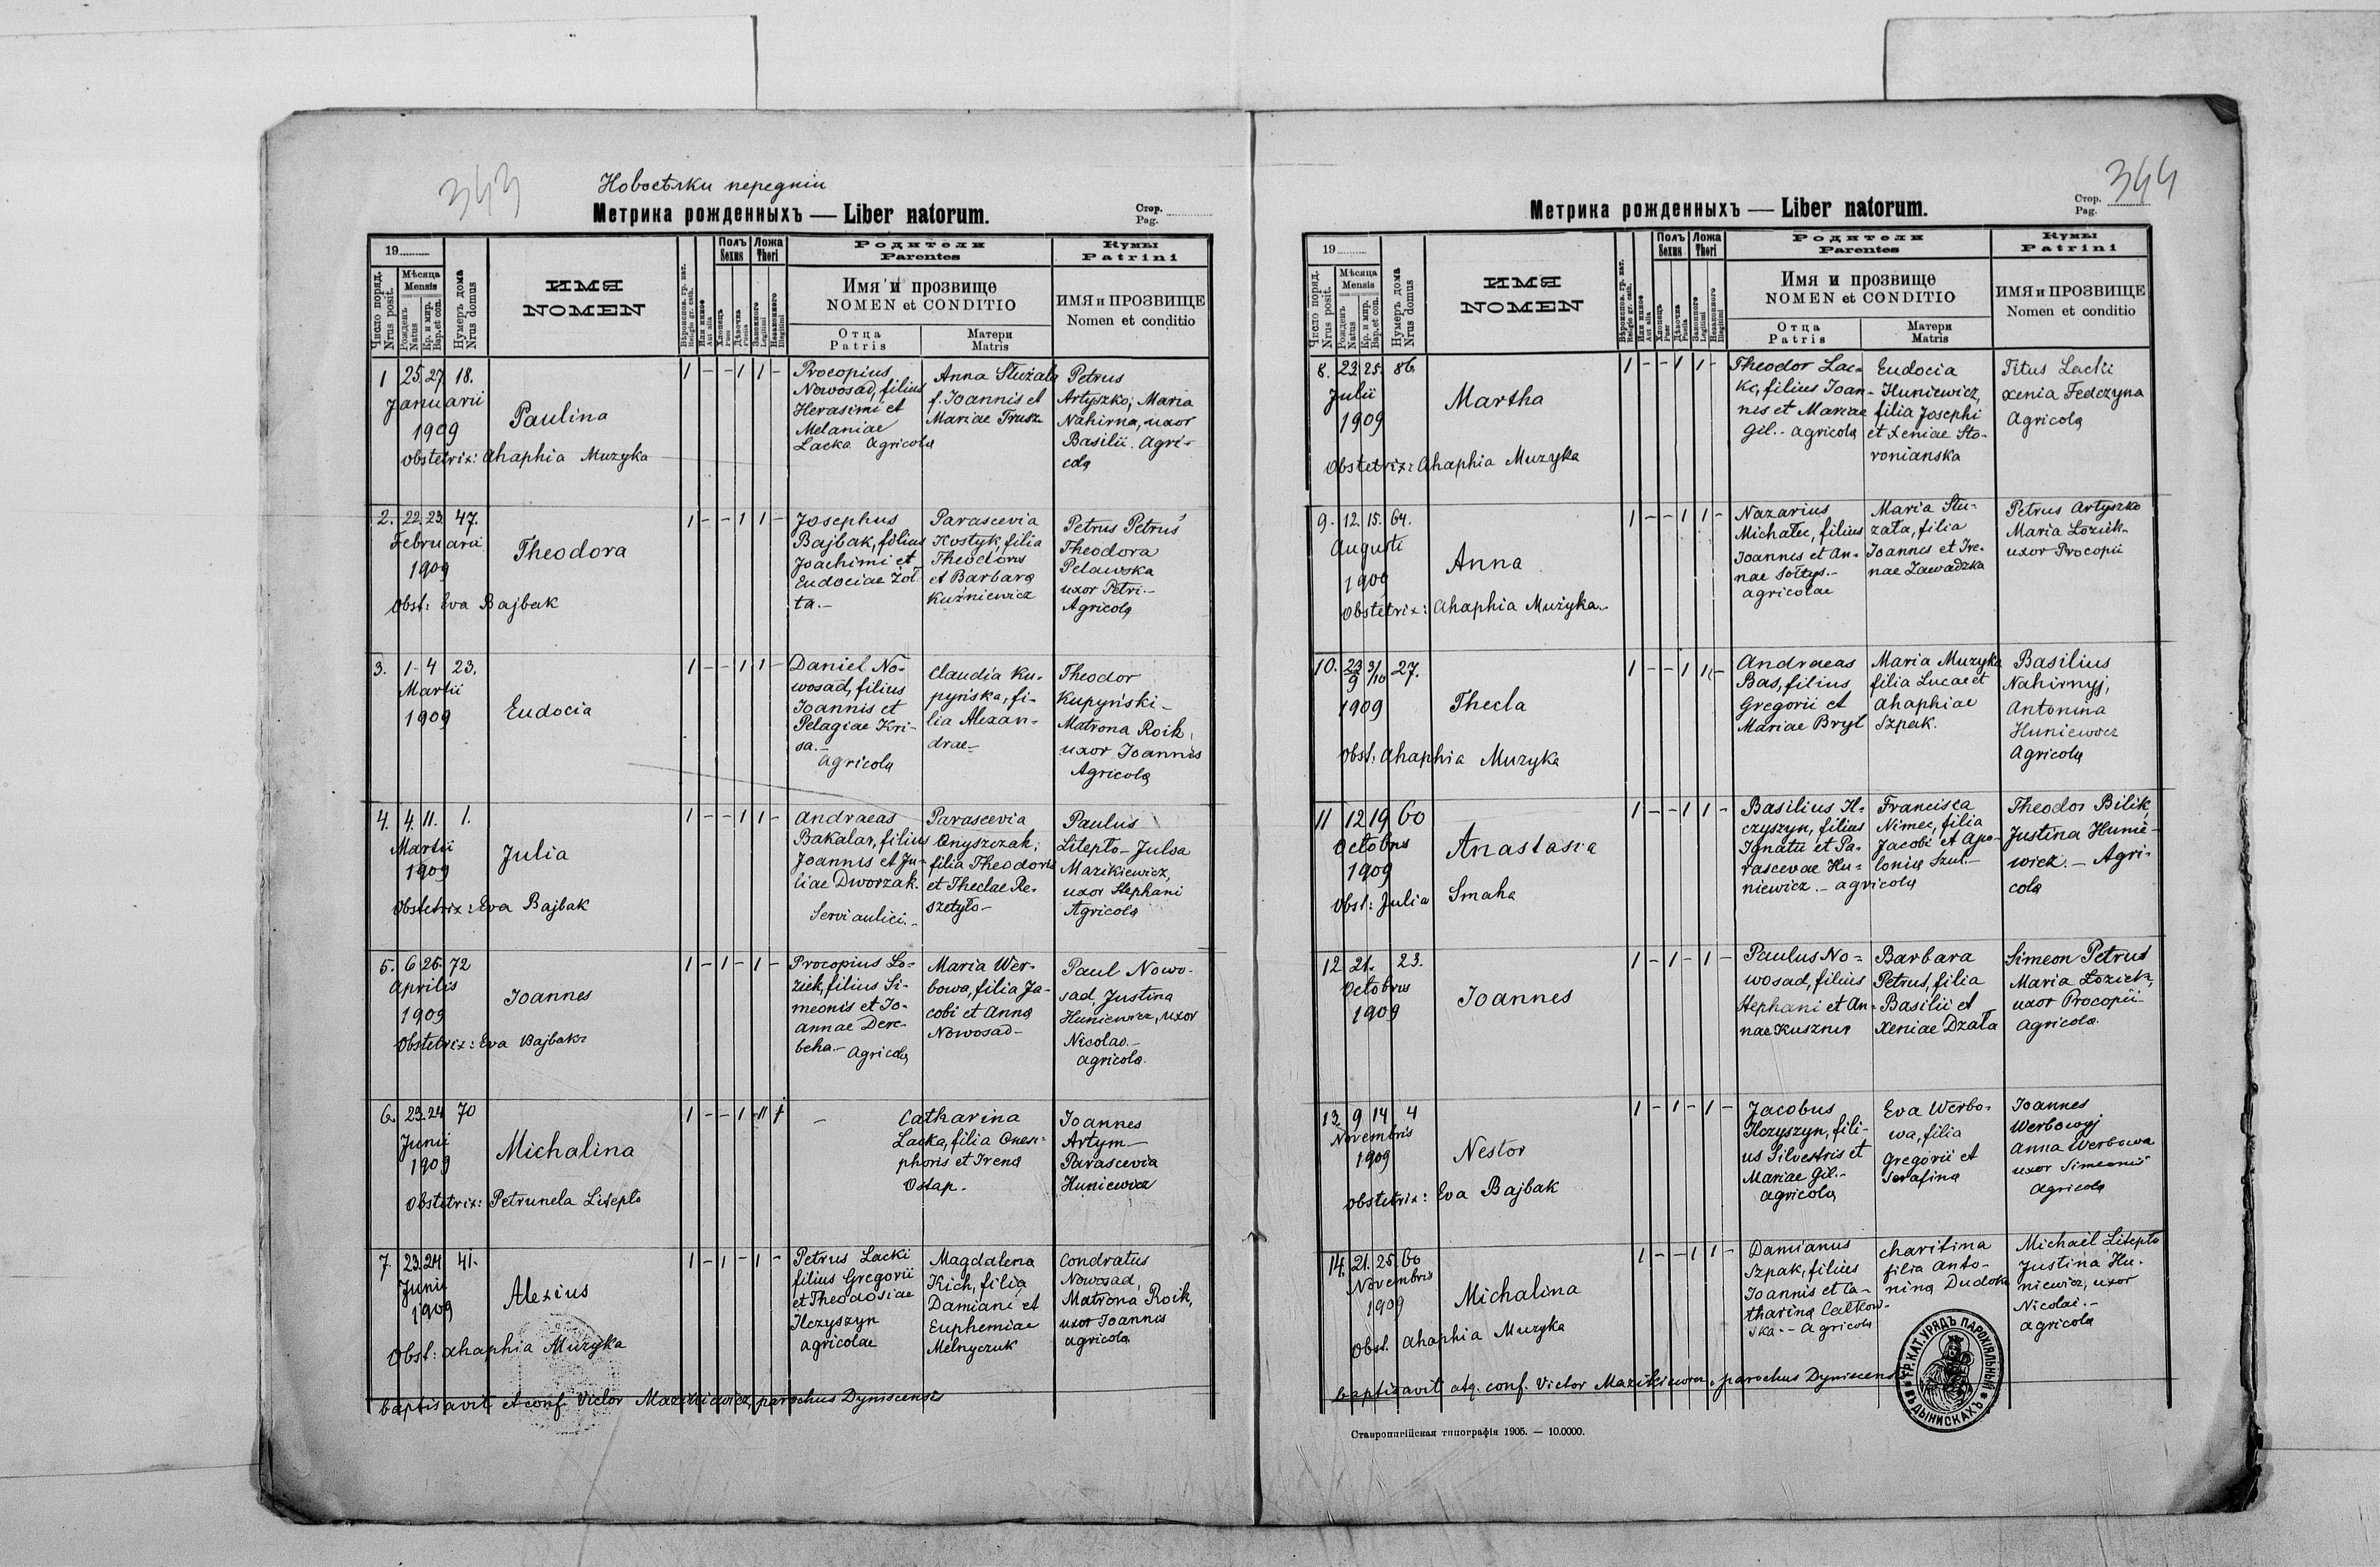 343
Новосѣлки переднiи
Метрика рожденныхъ — Liber natorum.
Стор.
Pag.
19
Число поряд.
Nrus posit.
Мѣсяца
Mensis
Рожденъ
Natus
Кр. и мир.
Bap. et con.
Нумеръ дома
Nrus domus
ИМЯ
NOMEN
Вѣроисповѣд. гр. кат.
Religio gr. cath.
Или инное
Aut alia
Полъ
Sexus
Хлопецъ
Puer
Дѣвочка
Puella
Ложа
Thori
Законного
Legitimi
Незаконного
Illegitimi
Родители
Parentes
Имя и прозвище
NOMEN et CONDITIO
Отца
Patris
Матери
Matris
Кумы
Patrini
ИМЯ и ПРОЗВИЩЕ
Nomen et conditio
1 25. 27. 18.
Januarii
1909
Paulina
obstetrix: Ahaphia Muzyka
1 - - 1 1 -
Procopius
Nowosad, filius
Herasimi et
Melaniae
Lacka Agricola
Anna Służała
f. Joannis et
Mariae Trusz
Petrus
Artyszko, Maria
Nahirna, uxor
Basilii. Agri-
cola
2. 22. 23. 47.
Februarii
1909
Theodora
Obst: Eva Bajbak
1 - - 1 1 -
Josephus
Bajbak, filius
Joachimi et
Eudociae Żoł-
ta.-
Parascevia
Kostyk, filia
Theodorus
et Barbara
Kuźniewicz
Petrus Petruś
Theodora
Pelawska
uxor Petri.-
Agricola
3. 1- 4 23.
Martii
1909
Eudocia
1 - - 1 1 -
Daniel No-
wosad, filius
Joannis et
Pelagiae Kri-
sa.-
Agricola
Claudia Ku-
pyńska, fi-
lia Alexan-
drae-
Theodor
Kupyński-
Matrona Roik,
uxor Joannis
Agricola
4. 4. 11. 1.
Martii
1909
Julia
Obstetrix: Eva Bajbak
1 - - 1 1 -
Andraeas
Bakalar, filius
Joannis et Ju-
liae Dworzak.
Servi aulici.-
Parascevia
Onyszczak,
filia Theodoris
et Theclae Re-
szetyło-
Paulus
Litepło- Julia
Mazikiewicz,
uxor Stephani
Agricola
5. 6 25. 72
Aprilis
1909
Joannes
Obstetrix: Eva Bajbak
1 - 1 - 1 -
Procopius Lo-
ziek, filius Si-
meonis et Jo-
annae Dere-
beha.- Agricola
Maria Wer-
bowa, filia Ja-
cobi et Anna
Nowosad-
Paul Nowo-
sad, Justina
Huniewicz, uxor
Nicolao.-
agricola.
6. 23. 24 70
Junii
1909
Michalina
Obstetrix: Petrunela Litepło
-
Catharina
Lacka, filia Onesi-
phoris et Irena
Ostap.
Joannes
Artym-
Parascevia
Huniewicz
7 23. 24 41.
Junii
1909
Alexius
Obst: Ahaphia Muzyka
1 - 1 - 1 -
Petrus Lacki
filius Gregorii
et Theodosiae
Ilczyszyn
agricolae
Magdalena
Kich, filia
Damiani et
Euphemiae
Melnyczuk
Condratus
Nowosad,
Matrona Roik,
uxor Joannis
agricola
baptisavit et conf. Victor Mazikiewicz, parochus Dyniscensis
344
Метрика рожденныхъ — Liber natorum.
Стор.
Pag.
19
Число поряд.
Nrus posit.
Мѣсяца
Mensis
Рожденъ
Natus
Кр. и мир.
Bap. et con.
Нумеръ дома
Nrus domus
ИМЯ
NOMEN
Вѣроисповѣд. гр. кат.
Religio gr. cath.
Или инное
Aut alia
Полъ
Sexus
Хлопецъ
Puer
Дѣвочка
Puella
Ложа
Thori
Законного
Legitimi
Незаконного
Illegitimi
Родители
Parentes
Имя и прозвище
NOMEN et CONDITIO
Отца
Patris
Матери
Matris
Кумы
Patrini
ИМЯ и ПРОЗВИЩЕ
Nomen et conditio
8. 23. 25. 86.
Julii
1909
Martha
Obstetrix: Ahaphia Muzyka
1 - - 1 1 -
Theodor Lac-
ki, filius Joan-
nis et Mariae
Gil.- agricola
Eudocia
Huniewicz,
filia Josephi
et Xeniae Sto-
ronianska
Titus Lacki
Xenia Fedczyna
Agricola
9. 12. 15. 64.
Augusti
1909
Anna
Obstetrix: Ahaphia Muzyka.
1 - - 1 1 -
Nazarius
Michalec, filius
Joannis et An-
nae Sołtys.-
agricolae
Maria Słu-
żała, filia
Joannis et Ire-
nae Zawadzka
Petrus Artyszko
Maria Loziek-
uxor Procopii
10. 23/9 3/10 27.
1909
Thecla
Obst: Ahaphia Muzyka
1 - - 1 1 -
Andraeas
Bas, filius
Gregorii et
Mariae Bryl
Maria Muzyka
filia Lucae et
Ahaphiae
Szpak.
Basilius
Nahirnyj,
Antonina
Huniewicz
Agricola
11 12 19 60
Octobris
1909
Anastasia
Obst: Julia Smaha
1 - - 1 1 -
Basilius Il-
czyszyn, filius
Ignatii et Pa-
rascevae Hu-
niewicz.- agricola
Francisca
Nimec, filia
Jacobi et Apo-
lonia Szul.-
Theodor Bilik,
Justina Hunie-
wicz.- Agri-
cola
12 21. 23.
Octobris
1909
Joannes
1 - 1 - 1 -
Paulus No-
wosad, filius
Stephani et An-
nae Kusznir
Barbara
Petrus, filia
Basilii et
Xeniae Dzała
Simeon Petrus
Maria Łoziek,
uxor Procopii-
agricola.
13. 9 14 4
Novembris
1909
Nestor
Obstetrix: Eva Bajbak
1 - 1 - 1 -
Jacobus
Ilczyszyn, fili-
us Silvestris et
Mariae Gil.-
agricola
Eva Werbo-
wa, filia
Gregorii et
Serafina
Joannes
Werbowyj
Anna Werbowa
uxor Simeonis
agricola
14. 21. 25. 60
Novembris
1909
Michalina
Obst. Ahaphia Muzyka
1 - - 1 1 -
Damianus
Szpak, filius
Joannis et Ca-
tharina Całkow-
ska.- Agricola
Charitina
filia Anto-
nina Dudoka
Michael Litepło
Justina Hu-
niewicz, uxor
Nicolai.-
agricola
baptisavit atq. conf. Victor Mazikiewicz, parochus Dyniscensis
ГР. КАТ. УРЯДЪ ПАРОХІЯЛЬНЫЙ
ВЪ ДЫНИСКАХЪ
Ставропигійская типографія 1905. — 10.0000.